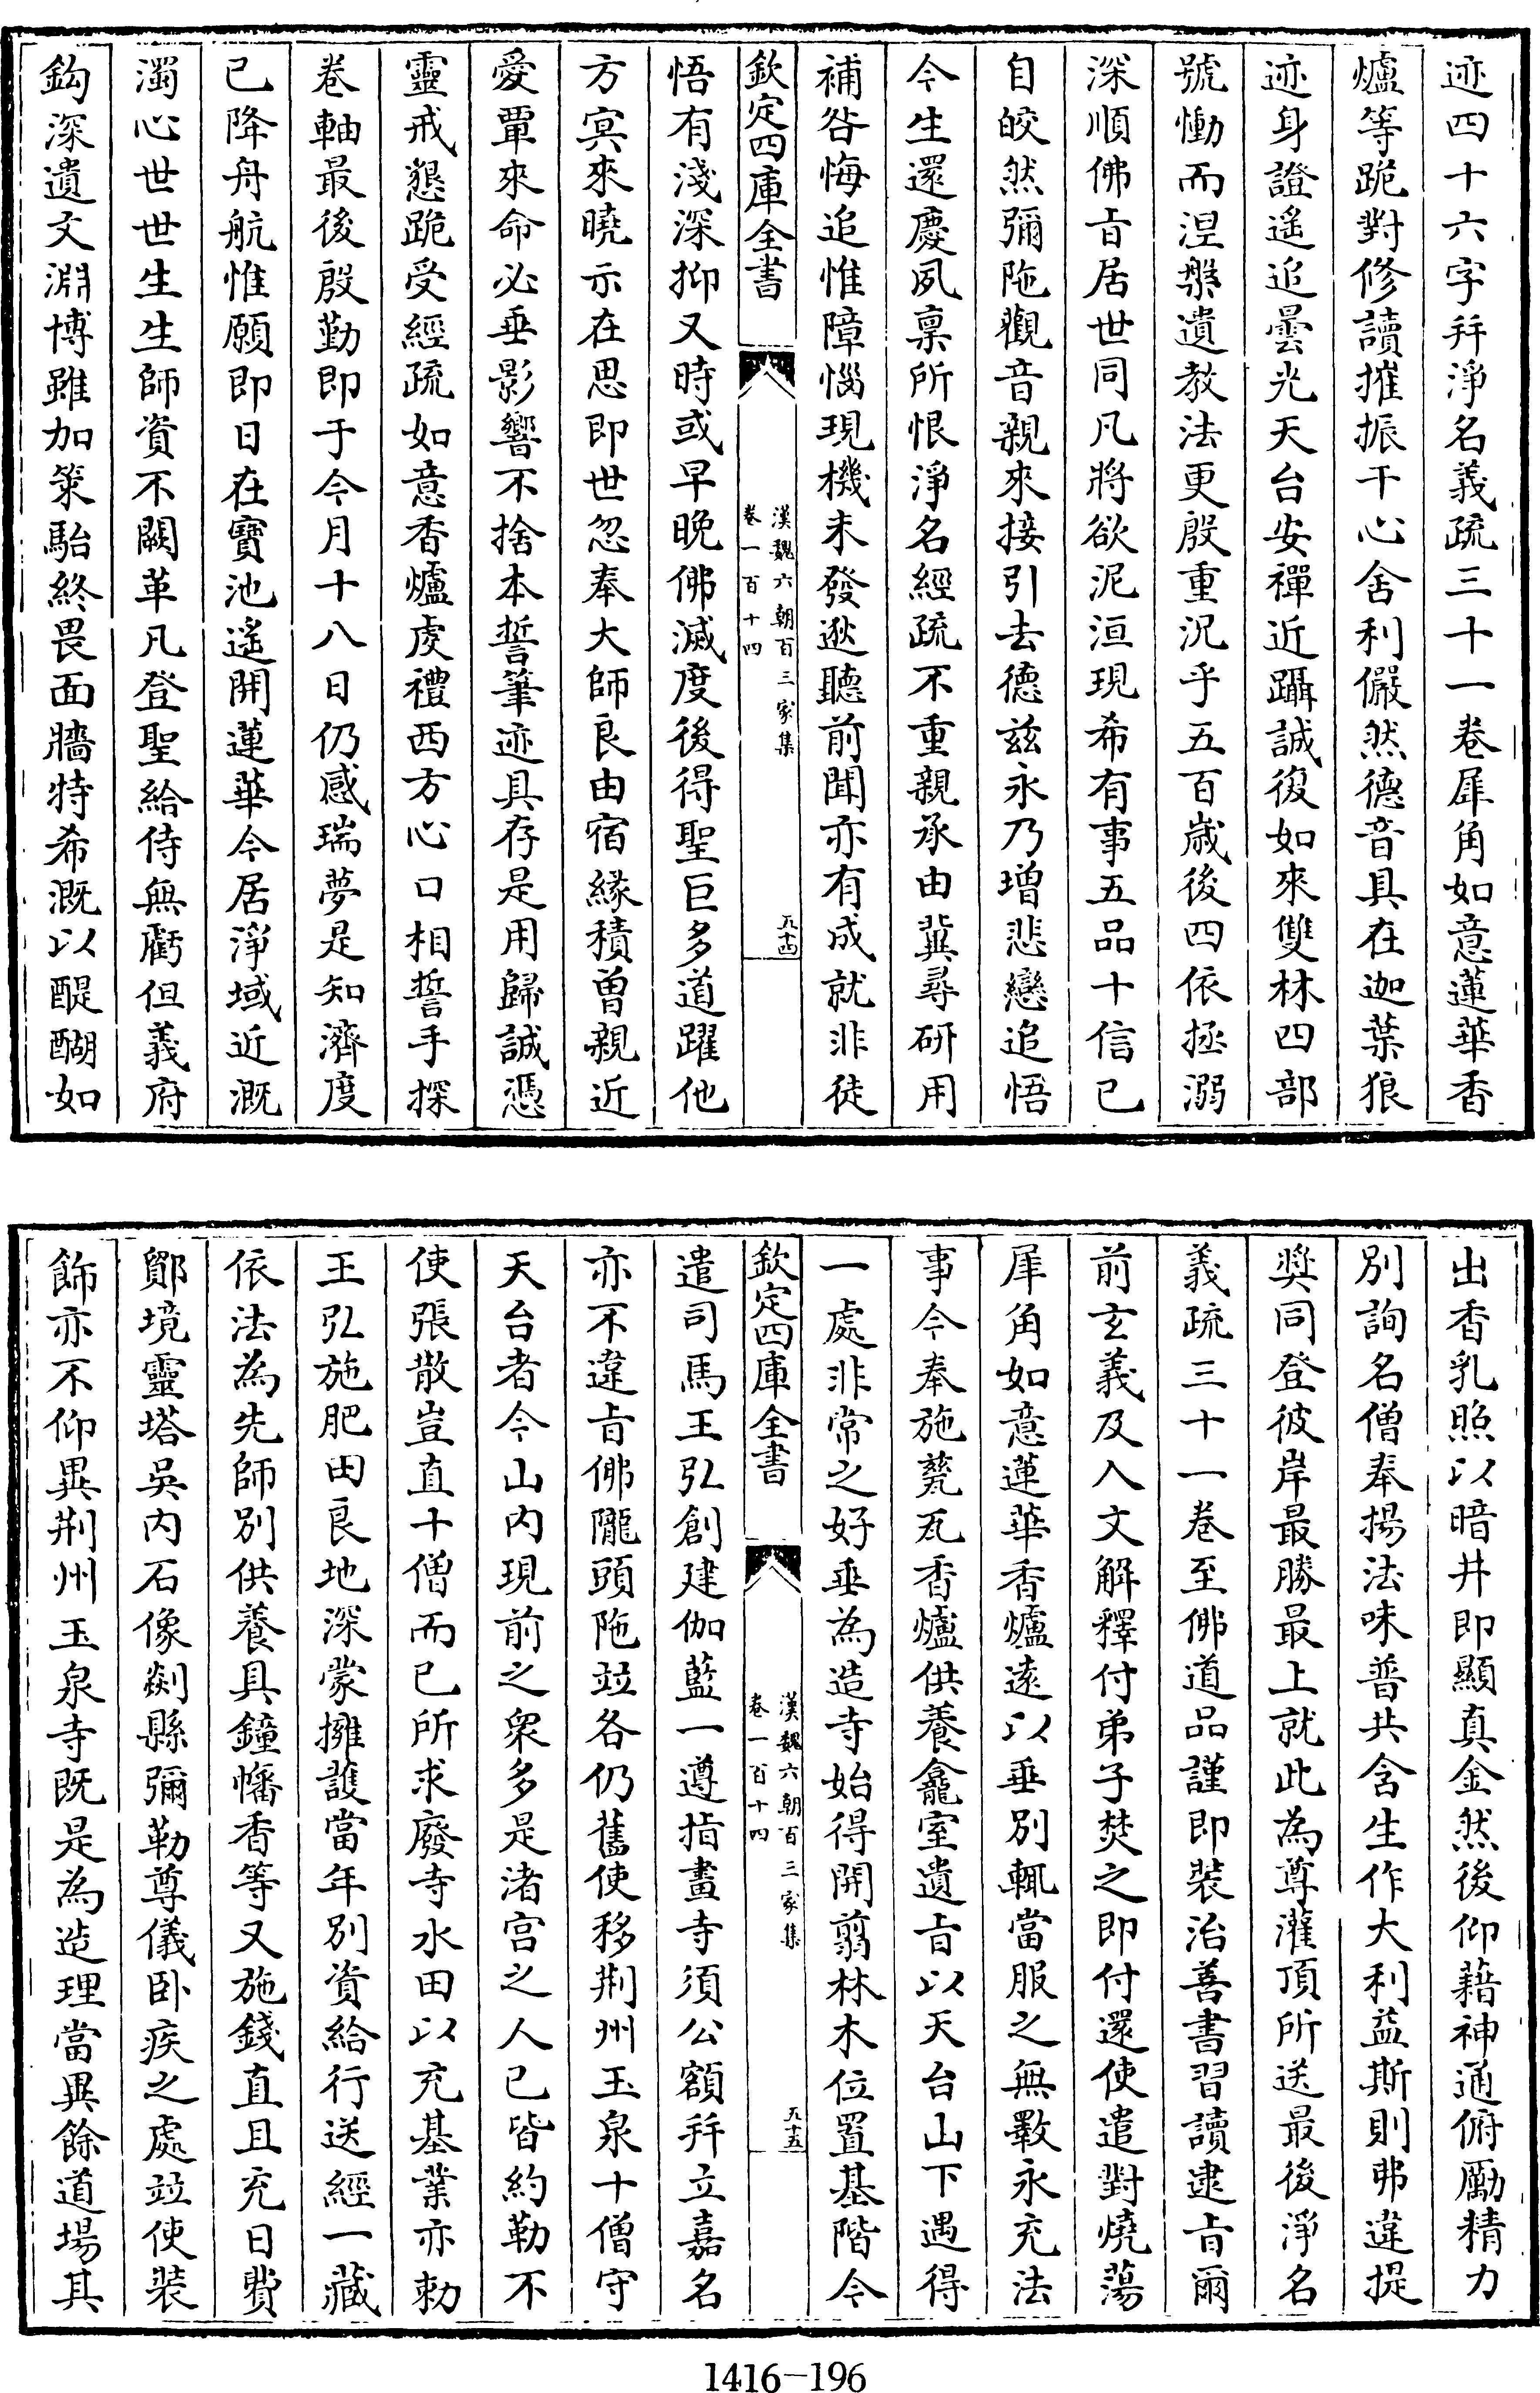 迹四十六字并淨名義疏三十一卷犀角如意蓮華香
爐等跪對修讀摧振干心舍利儼然德音具在迦葉狼
迹身證遙追曇光天台安禪近躡誠復如來雙林四部
號慟而涅槃遺教法更殷重況乎五百歲後四依拯溺
深順佛旨居世同凡將欲泥洹現希有事五品十信已
自皎然彌陁觀音親來接引去德兹永乃增悲戀追悟
今生還慶夙稟所恨淨名經疏不重親承由冀尋研用
補咎悔追惟障惱現機未發逖聽前聞亦有成就非徒
欽定四庫全書
漢魏六朝百三家集
卷一百十四
九十四
悟有淺深抑又時或早晚佛滅度後得聖巨多道躍他
方冥來曉示在思即世忽奉大師良由宿緣積曽親近
愛覃來命必垂影響不捨本誓筆迹具存是用歸誠憑
靈戒懇跪受經疏如意香爐虔禮西方心口相誓手探
卷軸最後殷勤即于今月十八日仍感瑞夢是知濟度
已降舟航惟願即日在寶池遙開蓮華今居淨域近溉
濁心世世生生師資不闕革凡登聖給侍無虧但義府
鈎深遺文淵博雖加策駘終畏面牆特希溉以醍醐如
出香乳照以暗井即顯真金然後仰藉神通俯勵精力
別詢名僧奉揚法味普共含生作大利益斯則弗違提
奬同登彼岸最勝最上就此為尊灌頂所送最後淨名
義疏三十一卷至佛道品謹即裝治善書習讀逮旨爾
前玄義及入文解釋付弟子焚之即付還使遣對燒蕩
犀角如意蓮華香爐遠以垂別輒當服之無斁永充法
事今奉施甆瓦香爐供養龕室遺旨以天台山下遇得
一處非常之好垂為造寺始得開翦林木位置基階今
欽定四庫全書
漢魏六朝百三家集
卷一百十四
九十五
遣司馬王弘創建伽藍一遵指畫寺須公額并立嘉名
亦不違旨佛隴頭陁竝各仍舊使移荆州玉泉十僧守
天台者今山内現前之衆多是渚宫之人已皆約勒不
使張散豈直十僧而已所求廢寺水田以充基業亦勅
王弘施肥田良地深蒙擁護當年別資給行送經一藏
依法為先師別供養具鐘幡香等又施錢直且充日費
鄮境靈塔吳内石像剡縣彌勒尊儀卧疾之處竝使裝
飾亦不仰異荆州玉泉寺既是為造理當異餘道場其
1416-196